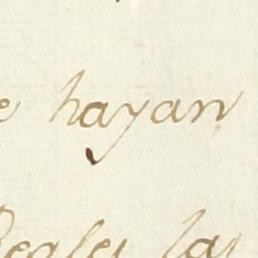 e hayan
Reales la